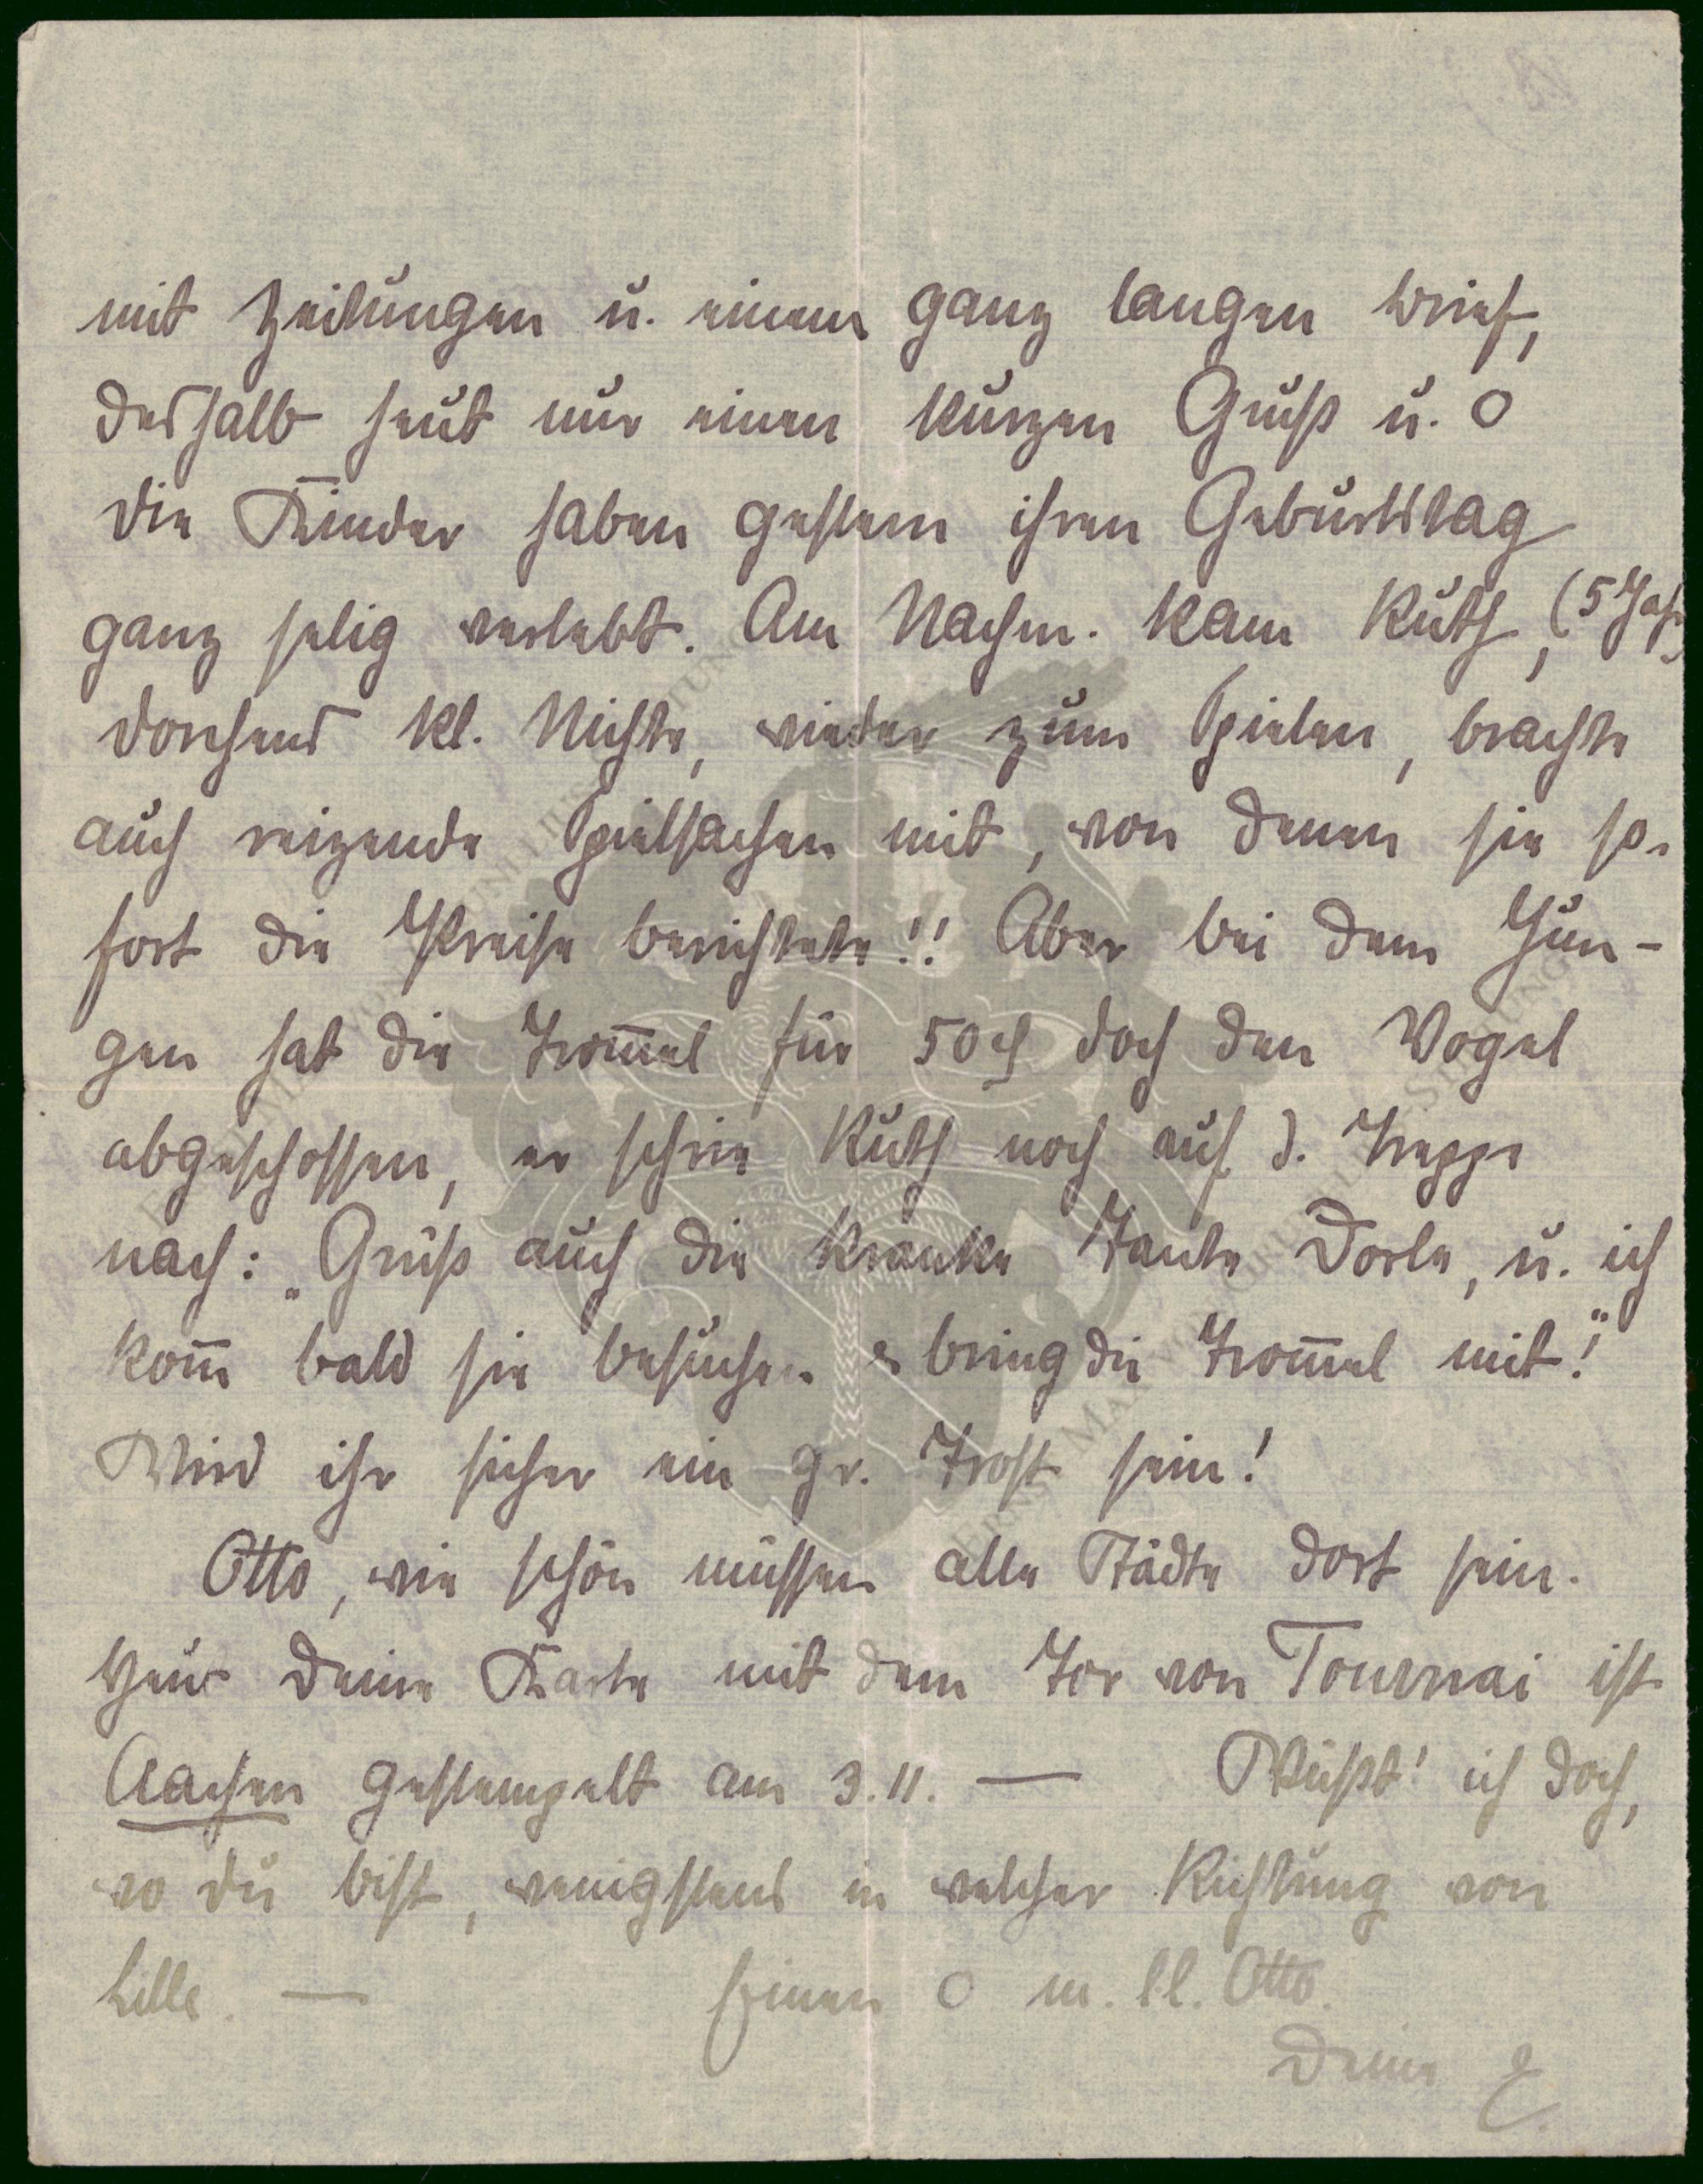 mit Zeitungen u. einem ganz langen Brief,
deshalb heut nur einen kurzen Gruß u. O
Die Kinder haben gestern ihren Geburtstag
ganz selig verlebt. Am Nachm. kam Ruth, (5 Jahr)
Dorchens kl. Nichte, wieder zum Spielen, brachte
auch reizende Spielsachen mit, von denen sie so-
fort die Preise berichtete!! Aber bei dem Jun-
gen hat die Trom̅el für 50 ₰ doch den Vogel
abgeschossen, er schrie Ruth noch auf d. Treppe
nach: „Grüß auch die kranke Tante Dorle, u. ich
kom̅ bald sie besuchen & bring die Trom̅el mit!"
Wird ihr sicher ein gr. Trost sein!
Otto, wie schön müssen alle Städte dort sein.
Deine Karte mit dem Tor von Tournai ist
Aachen gestempelt am 3.11. — Wüßt' ich doch,
wo du bist, wenigstens in welcher Richtung von
Lille. — Einen O m. ll. Otto.
Deine E.